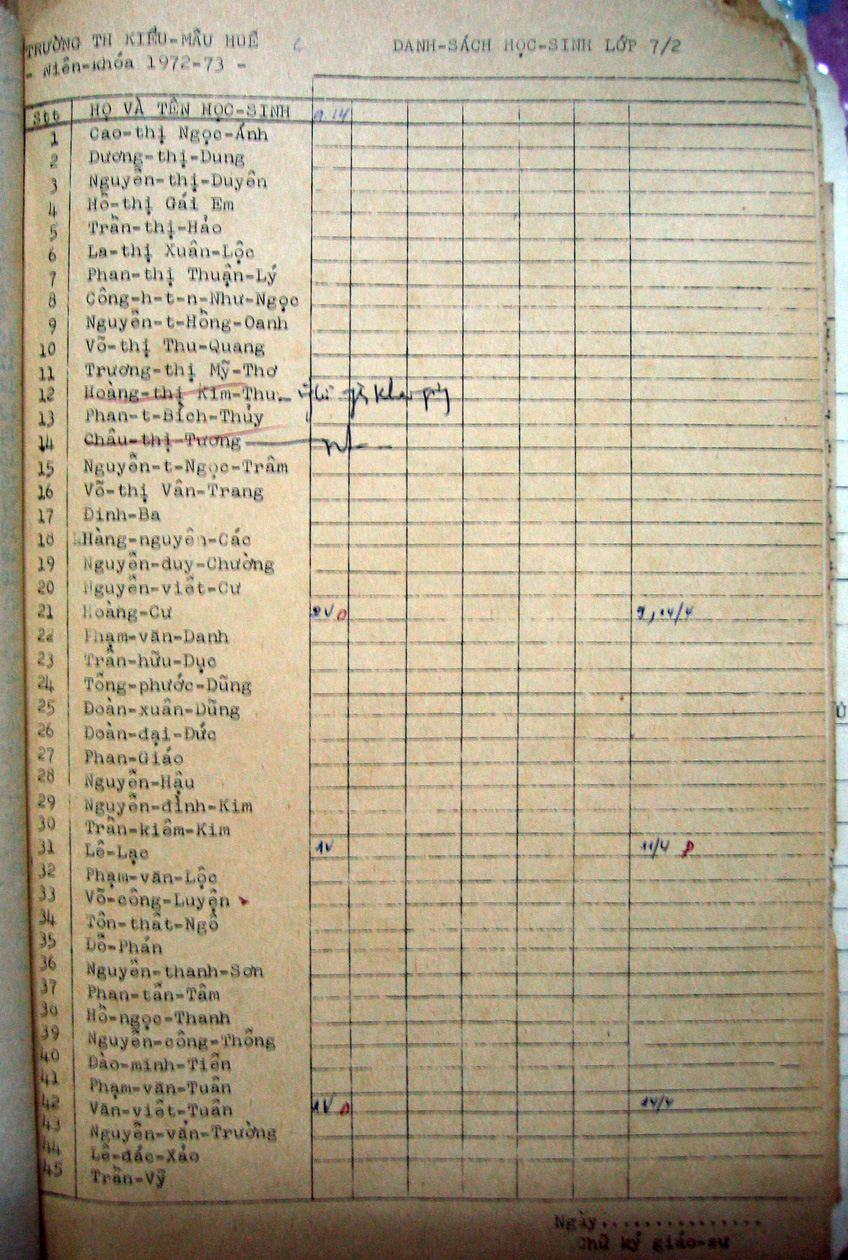 TRƯỜNG TH KIỂU-MẪU HUẾ
DANH-SÁCH HỌC-SINH LỚP 7/2
- Niên-khóa 1972-73 -
Stt HỌ VÀ TÊN HỌC-SINH 9.14
1 Cao-thị Ngọc-Ánh
2 Dương-thị-Dung
3 Nguyễn-thị-Duyên
4 Hồ-thị Gái Em
5 Trần-thị-Hảo
6 La-thị Xuân-Lộc
7 Phan-thị Thuận-Lý
8 Công-h-t-n-Như-Ngọc
9 Nguyễn-t-Hồng-Oanh
10 Võ-thị Thu-Quang
11 Trương-thị Mỹ-Thơ
12 Hoàng-thị Kim-Thu
13 Phan-t-Bích-Thủy
14 Châu-thị-Tương
15 Nguyễn-t-Ngọc-Trâm
16 Võ-thị Vân-Trang
17 Dinh-Ba
18 Hàng-nguyên-Các
19 Nguyễn-duy-Chường
20 Nguyễn-viết-Cư
21 Hoàng-Cư 2V 9,14/4
22 Phạm-văn-Danh
23 Trần-hữu-Dục
24 Tống-phước-Dũng
25 Doàn-xuân-Dũng
26 Doàn-đại-Đức
27 Phan-Giáo
28 Nguyễn-Hậu
29 Nguyễn-đình-Kim
30 Trần-kiêm-Kim
31 Lê-Lạc 1V 11/4 P
32 Phạm-văn-Lộc
33 Võ-công-Luyện
34 Tôn-thất-Ngô
35 Dỗ-Phán
36 Nguyễn-thanh-Sơn
37 Phan-tấn-Tâm
38 Hồ-ngọc-Thanh
39 Nguyễn-công-Thống
40 Dào-minh-Tiến
41 Phạm-văn-Tuấn
42 Văn-viết-Tuấn 1V 14/4
43 Nguyễn-văn-Trường
44 Lê-đắc-Xảo
45 Trần-Vỹ
Ngày...............
Chữ ký giáo-sư